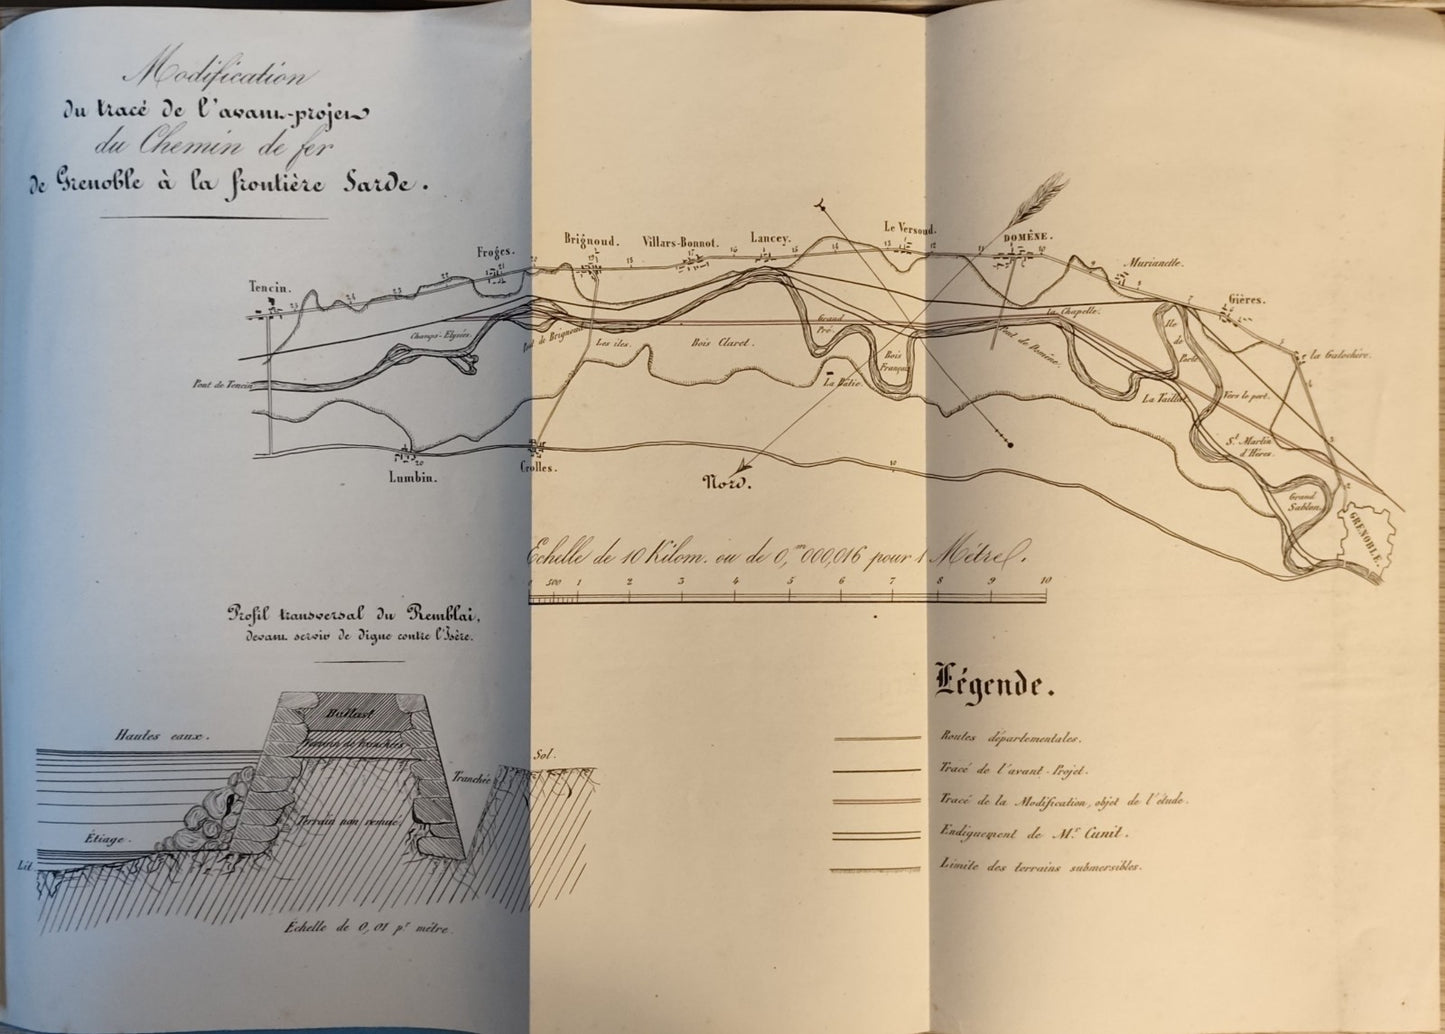 Modification
du tracé de l'avant-projet
du Chemin de fer
de Grenoble à la frontière Sarde.
Tencin.
Froges.
Brignoud.
Villars-Bonnot.
Lancey.
Le Versoud.
DOMÈNE.
Murianette.
Gières.
la Galochère.
Champs-Elysées.
Pont de Brignoud
Les iles.
Bois Claret.
Grand
Pré.
Bois
Français
La Bâtie.
Pont de Domène.
la Chapelle.
Ile
de
La Taillat
Vers le port.
St. Martin
d'Hères.
Grand
Sablon.
GRENOBLE.
Pont de Tencin
Lumbin.
Crolles.
Nord.
Echelle de 10 Kilom. ou de 0,m000,016 pour 1 Mètre.
0 500 1 2 3 4 5 6 7 8 9 10
Profil transversal du Remblai,
devant servir de digue contre l'Isère.
Hautes eaux.
Étiage.
Lit
Ballast
Terrain de tranchées
Terrain non remué
Tranchée
Sol.
Échelle de 0,01 pr mètre.
Légende.
Routes départementales.
Tracé de l'avant-Projet.
Tracé de la Modification, objet de l'étude.
Endiguement de Mr. Cunit.
Limite des terrains submersibles.